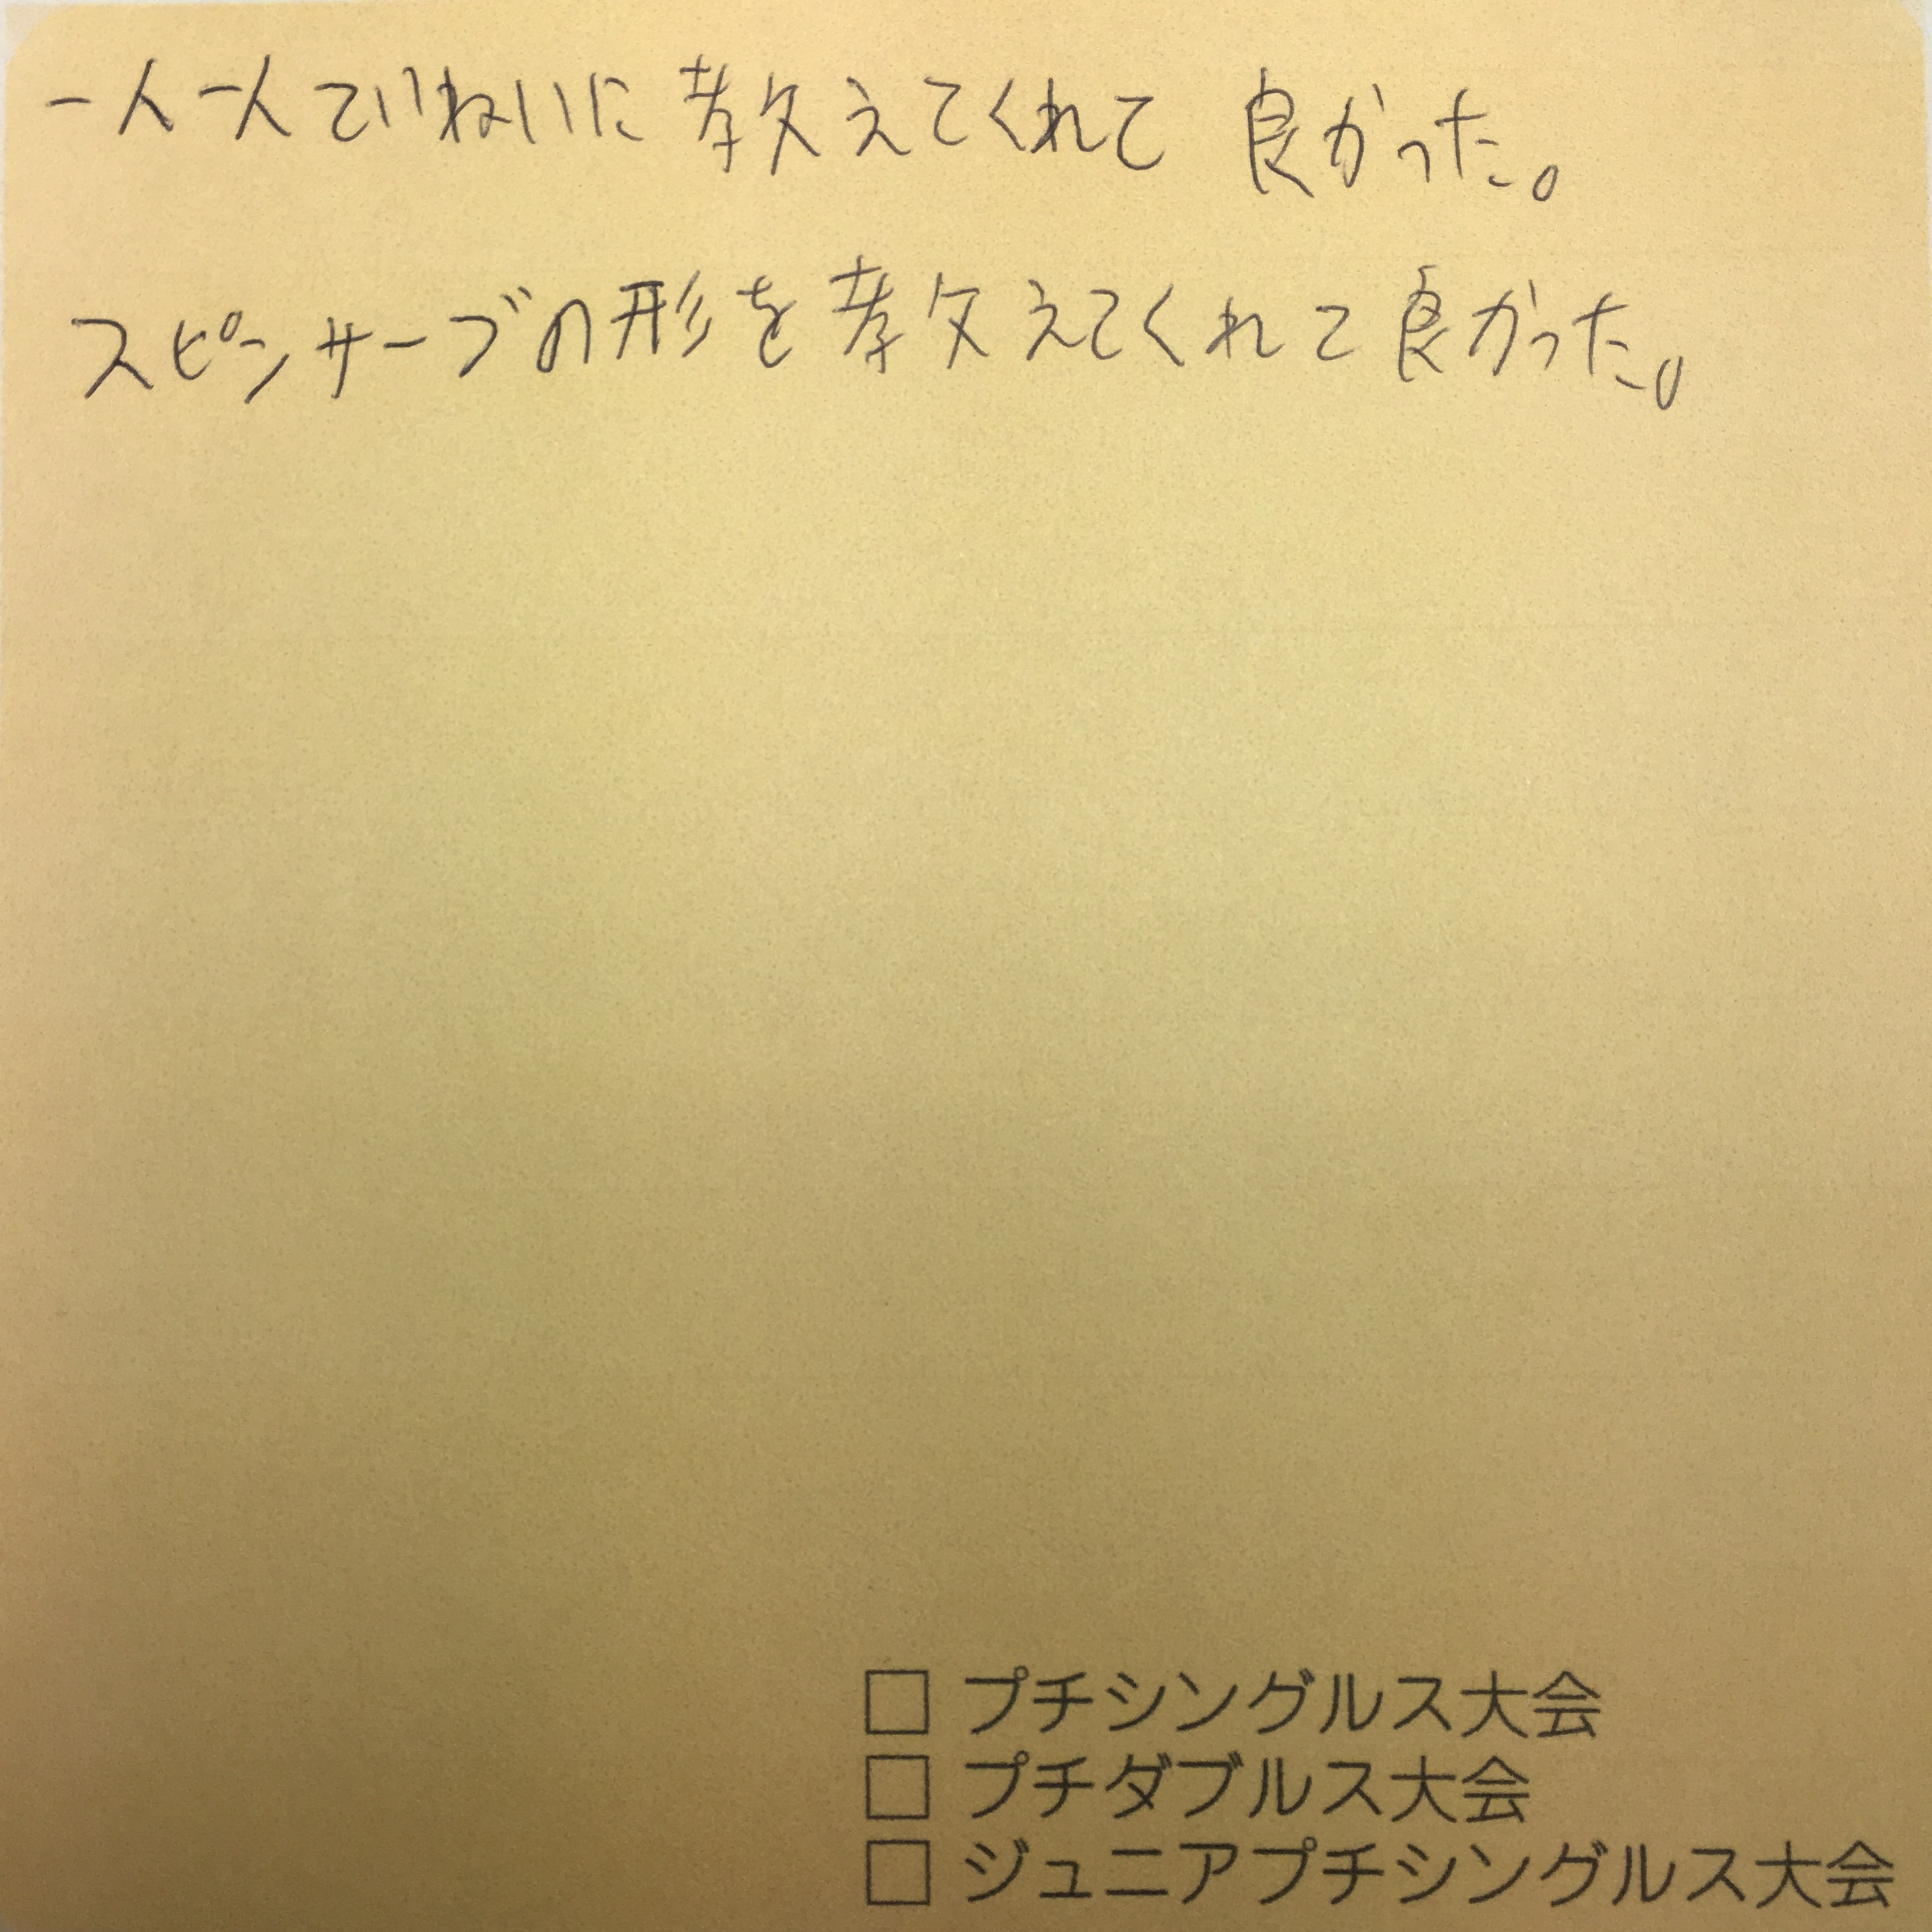 一人一人ていねいに教えてくれて良かった。
スピンサーブの形を教えてくれて良かった。
□ プチシングルス大会
□ プチダブルス大会
□ ジュニアプチシングルス大会